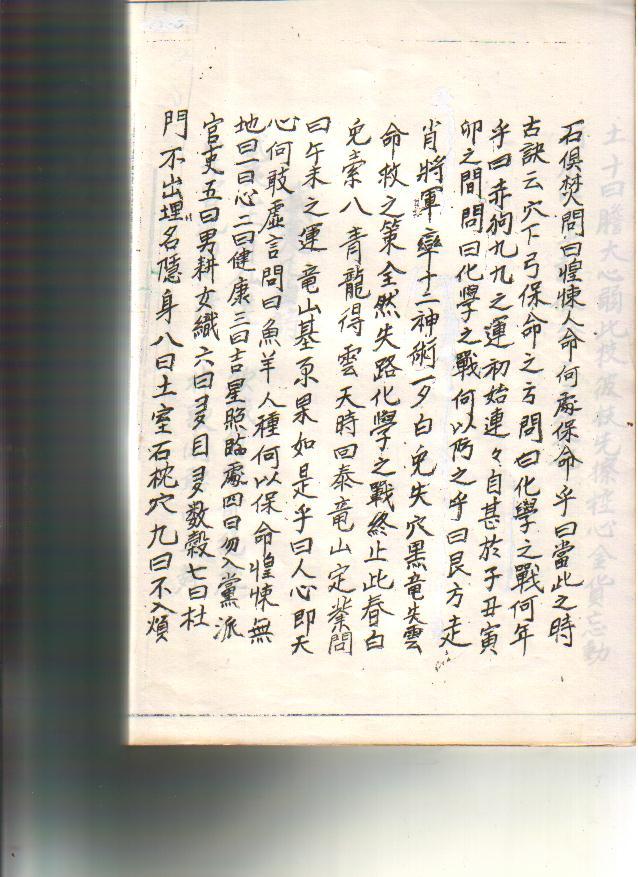 石俱焚問曰惶悚人命何處保命乎曰當此之時
古訣云穴下弓保命之方問曰化學之戰何年
乎曰赤狗九九之運初始連々自甚於子丑寅
卯之間問曰化學之戰何以防之乎曰艮方走
肖將軍率十二神術一夕白兔失穴黑竜失雲
命救之策全然失路化學之戰終止此春白
兔素八青龍得雲天時回泰竜山定業問
曰午未之運竜山基京果如是乎曰人心即天
心何敢虛言問曰魚羊人種何以保命惶悚無
地曰一曰心二曰健康三曰吉星照臨處四曰勿入黨派
官吏五曰男耕女織六曰多目多数穀七曰杜
門不出埋名隱身八曰土室石枕穴九曰不入煩